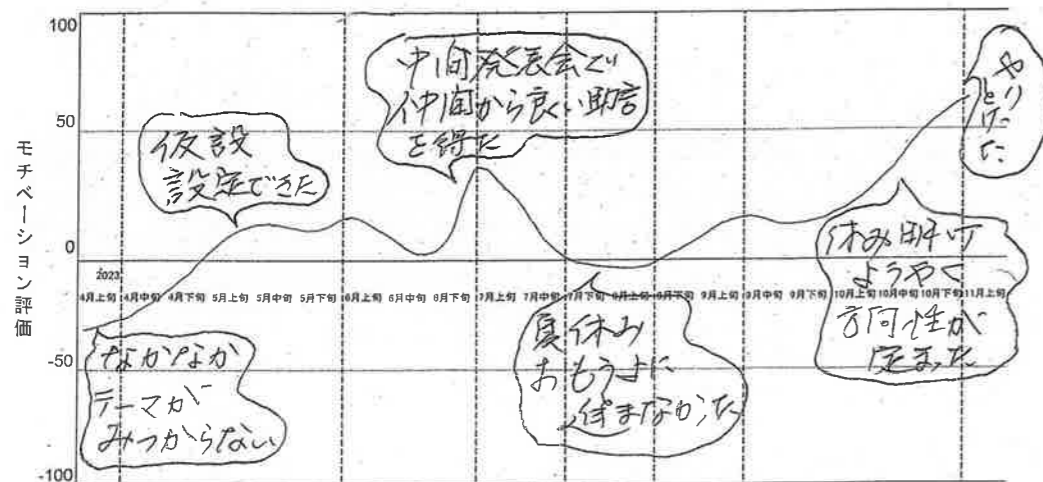 モチベーション評価
100
50
0
-50
-100
2023
4月上旬 4月中旬 4月下旬 5月上旬 5月中旬 5月下旬 6月上旬 6月中旬 6月下旬 7月上旬 7月中旬 7月下旬 8月上旬 9月上旬 9月中旬 9月下旬 10月上旬 10月中旬 10月下旬 11月上旬
なかなか
テーマが
みつからない
仮設
設定できた
中間発表会で
仲間から良い助言
を得た
夏休み
おもうよに
まなかった
休み明け
ようやく
方向性が
定まった
やり
とげた